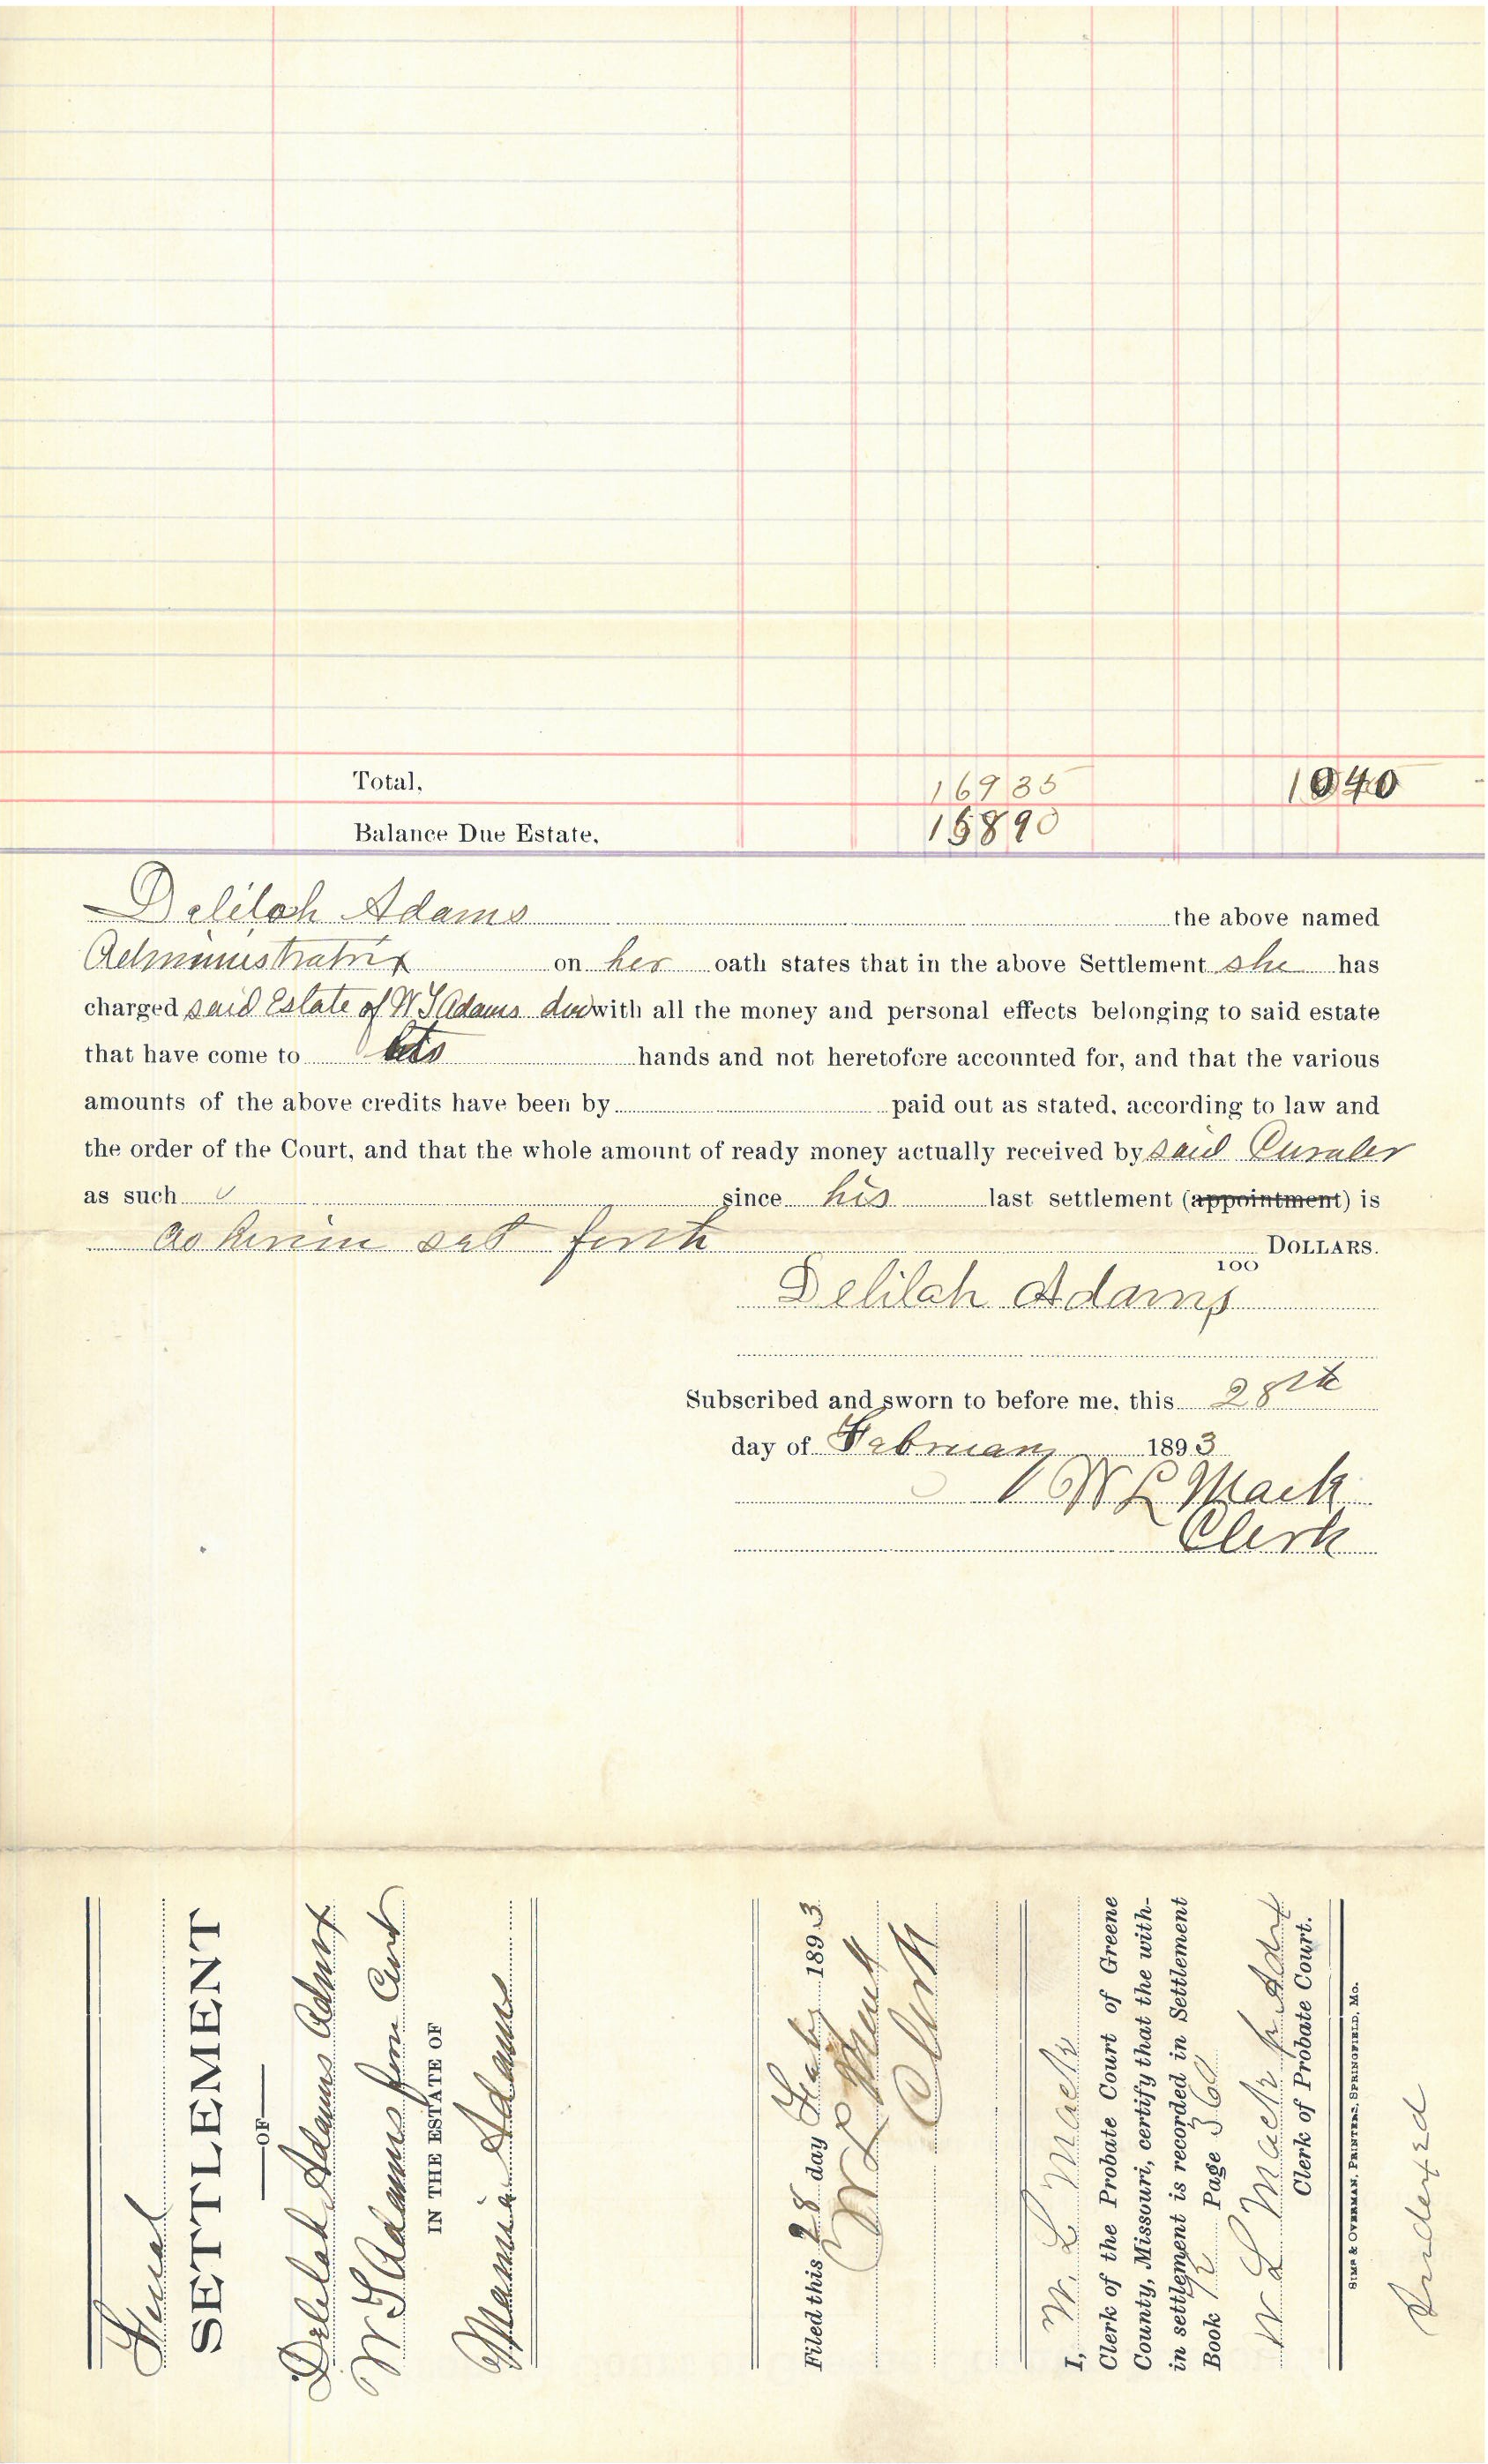 Total, 169 35 10 40
Balance Due Estate, 158 90
Delilah Adams the above named
Administratrix on her oath states that in the above Settlement she has
charged said Estate of W S Adams decd with all the money and personal effects belonging to said estate
that have come to his hands and not heretofore accounted for, and that the various
amounts of the above credits have been by paid out as stated, according to law and
the order of the Court, and that the whole amount of ready money actually received by said Curater
as such since his last settlement (appointment) is
as herein set forth DOLLARS.
100
Delilah Adams
Subscribed and sworn to before me, this 28th
day of February 1893
W L Mack
Clerk
Final
SETTLEMENT
OF
Delilah Adams Admx
W S Adams Curt
IN THE ESTATE OF
Mamie Adams
Filed this 28 day Feaby 1893
W L Mack
Clerk
I, W. L Mack
Clerk of the Probate Court of Greene
County, Missouri, certify that the with-
in settlement is recorded in Settlement
Book Page 360
W L Mack
Clerk of Probate Court.
SIMP & OVERMAN, PRINTERS, SPRINGFIELD, MO.
Indexed